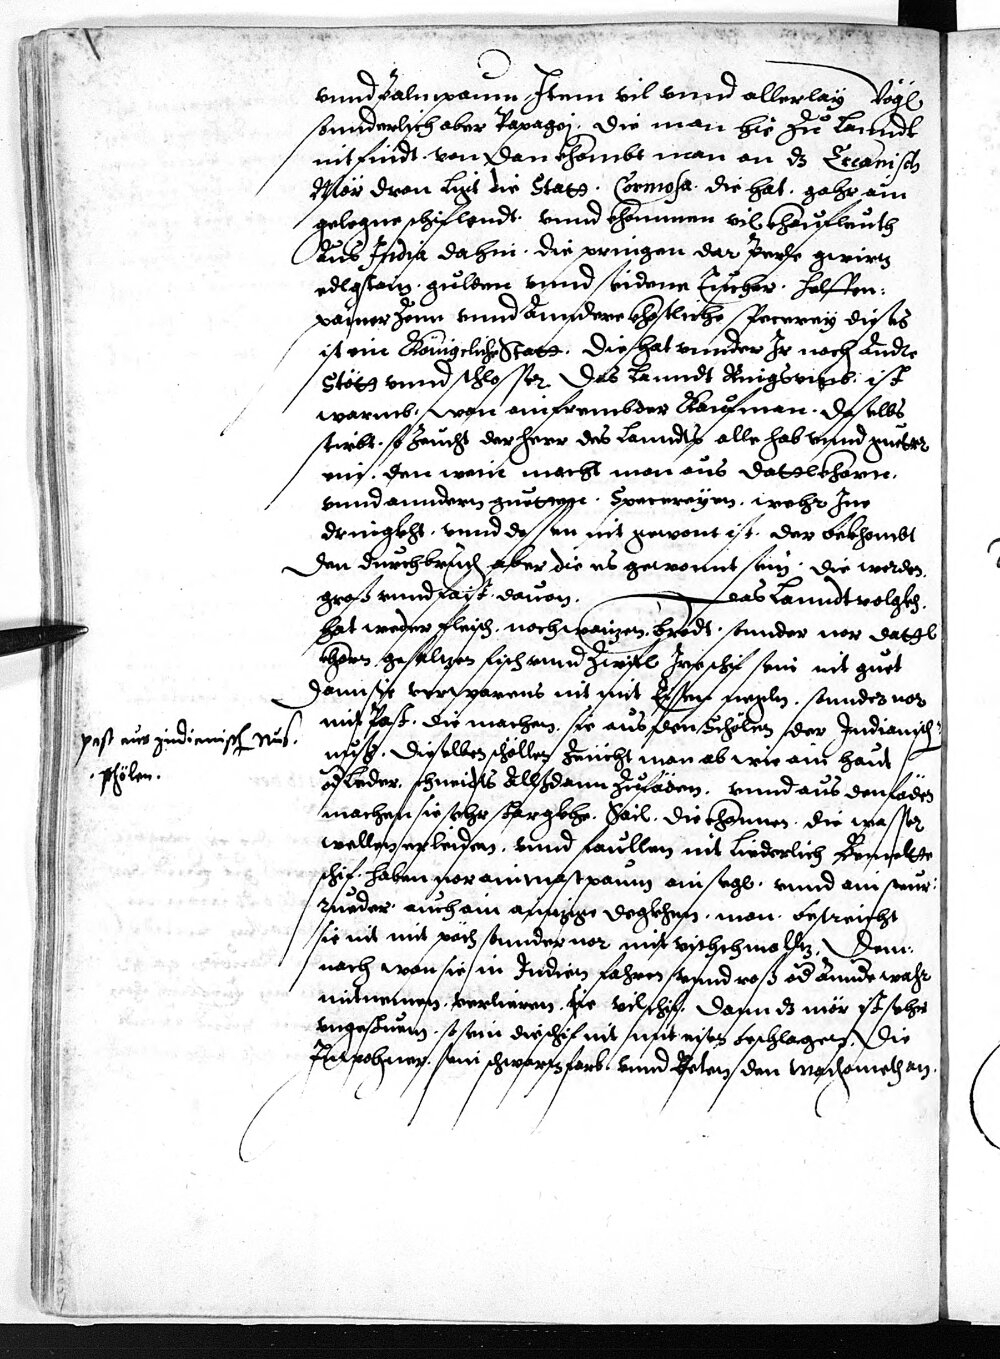 vnnd Palmpaum, Item vil vnnd allerlay Vögl
sonnderlich aber Papagoj. die man hie zu Lanndt
nit findt. von dan khombt man an dz Occanisch
Mör dran ligt die Statt. Cormosa. die hat. gahr ain
gelegne schiflendt. vnnd khommen vil khaufleuth
aus India dahin. die pringen dar Perle gwirz
edlgstain. gulden vnnd seidene Tuecher. helffen:
painer Zenn vnnd Anndere khostliche Specerey dis ist
ist ein Königcliche Statt. die hat vnnder Ir noch Andre
Stött vnnd schlosser. Das Lanndt Ringsumb. ist
warmb. wan ain frembder Kaufman. daselbs
stirbt. so Zeucht der herr des Lanndts alle hab vnnd guetter
ein. den wein macht man aus dattlkhern.
vnnd anndern guetten. Specereyen. wehr Ine
drinckht. vnnd dessen nit gewont ist. der bekhombt
den durchbruch aber die es gewonnt sein. die werden.
groß vnnd faist. dauon. das Lanndt volgkh.
hat weder fleisch. noch waizen. brodt. sonnder nor dattl
khern gesalzen fisch vnnd Zwifl Ire schif sein nit guet
dann sie verwarens nit mit Eissen negeln. sonnder nor
mit Past. die machen. sie aus den Schölen der Indianisch:
nuß. dieselben schöllen Zeucht man ab wie ain haut
od Leder. schneidts Allßdann Zu fäden. vnnd aus den fäden
machen sie sehr starckhe. Sail. die khönnen. die wasser
wellen erleiden. vnnd faullen nit Liederlich Bemelte
schif. haben nor ain mastpaum ain segl. vnnd ain steur:
rueder. auch ain ainzige deckhen. man. bestreicht
sie nit mit pöch sonnder nor mit vischschmaltz. Dem:
nach wan sie in Indien fahren vnnd roß od Annde wahr
mitnemen. verlieren. sie vil schif. dann dz mör ist sehr
vngestuem. so sein die schif nit mit eisen beschlagen. Die
Inwohner. sein schwartzfarb. vnnd Beten den Machomet an.
past aus Indianisch Nus.
schölen.